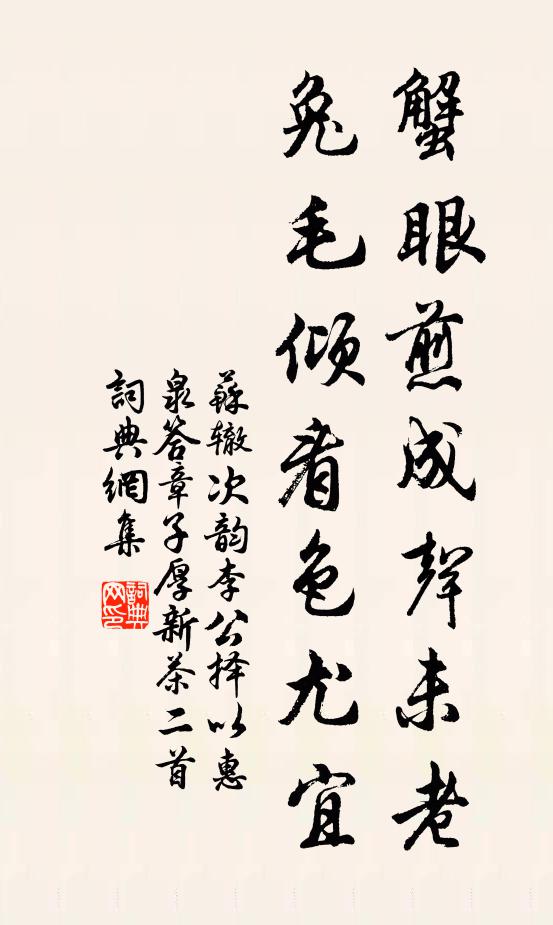 蟹眼煎成聲未老
兔毛傾看色尤宜
蘇辙次韵李公择以惠
泉答章子厚新茶二首
詞典網集
詞典网印